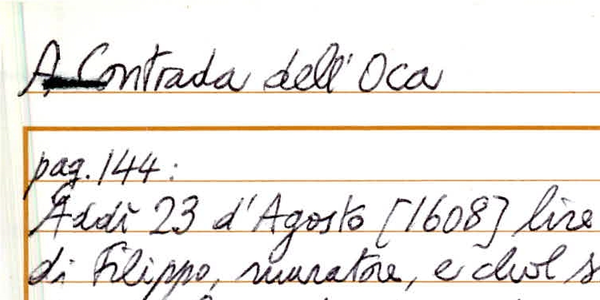 A Contrada dell'Oca
pag. 144:
Addì 23 d'Agosto [1608] lire
di Filippo, muratore, e